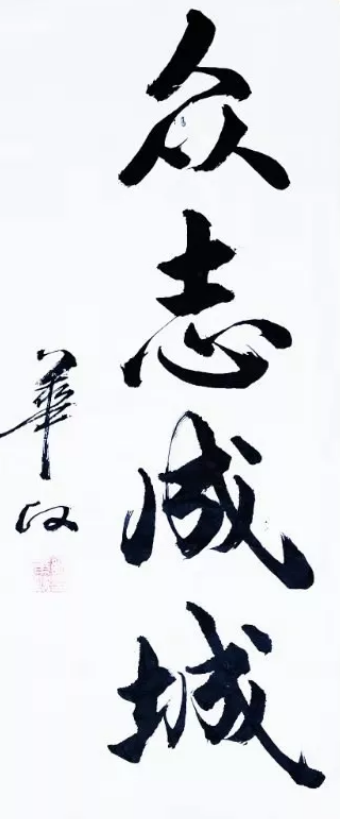 众志成城
華